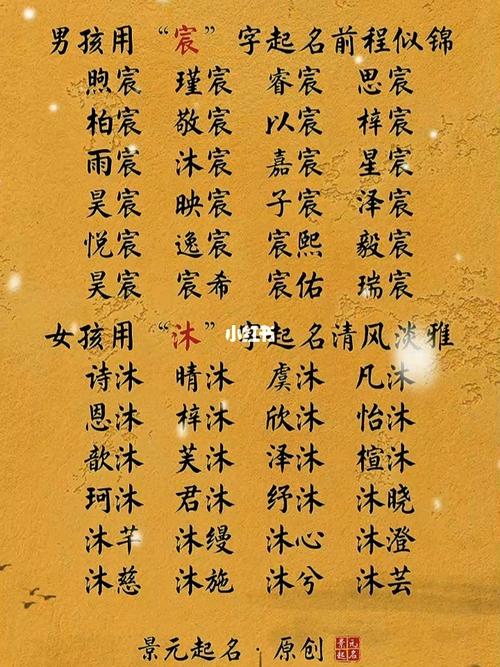 男孩用“宸”字起名前程似锦
煦宸 瑾宸 睿宸 思宸
柏宸 敬宸 以宸 梓宸
雨宸 沐宸 嘉宸 星宸
昊宸 映宸 子宸 泽宸
悦宸 逸宸 宸熙 毅宸
昊宸 宸希 宸佑 瑞宸
小红书
女孩用“沐”字起名清风淡雅
诗沐 晴沐 虞沐 凡沐
恩沐 梓沐 欣沐 怡沐
歆沐 芙沐 泽沐 楦沐
珂沐 君沐 纾沐 沐晓
沐芊 沐缦 沐心 沐澄
沐慈 沐施 沐兮 沐芸
景元起名·原创
景元起名